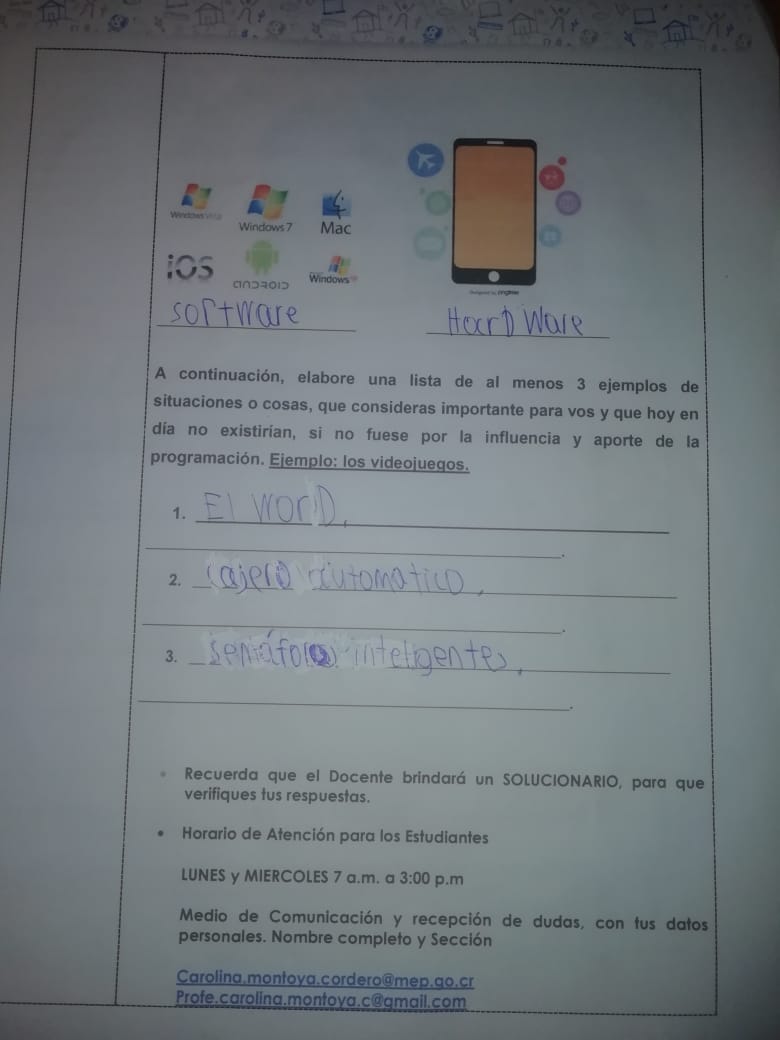 Windows Vista
Windows 7
Mac
iOS
ANDROID
Windows XP
software
HarD Ware
A continuación, elabore una lista de al menos 3 ejemplos de
situaciones o cosas, que consideras importante para vos y que hoy en
día no existirían, si no fuese por la influencia y aporte de la
programación. Ejemplo: los videojuegos.
1. El WorD,
.
2. cajero automatico,
.
3. semáforos inteligentes,
.
Recuerda que el Docente brindará un SOLUCIONARIO, para que
verifiques tus respuestas.
• Horario de Atención para los Estudiantes
LUNES y MIERCOLES 7 a.m. a 3:00 p.m
Medio de Comunicación y recepción de dudas, con tus datos
personales. Nombre completo y Sección
Carolina.montoya.cordero@mep.go.cr
Profe.carolina.montoya.c@gmail.com